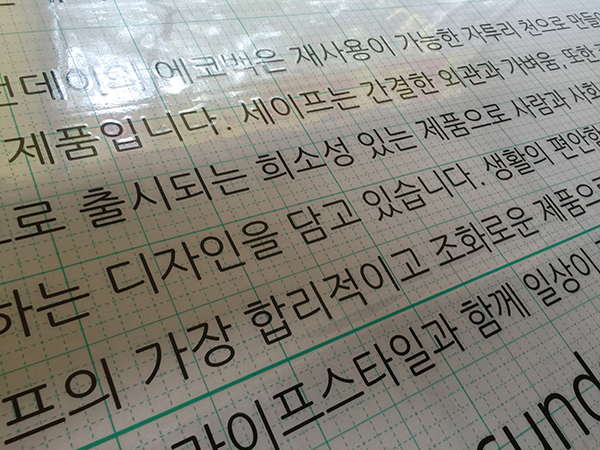 컨데이의 에코백은 재사용이 가능한 자투리 천으로 만들
제품입니다. 세이프는 간결한 외관과 가벼움, 또한
로 출시되는 희소성 있는 제품으로 사람과 사회
하는 디자인을 담고 있습니다. 생활의 편안함
프의 가장 합리적이고 조화로운 제품으로
라이프스타일과 함께 일상이
sund